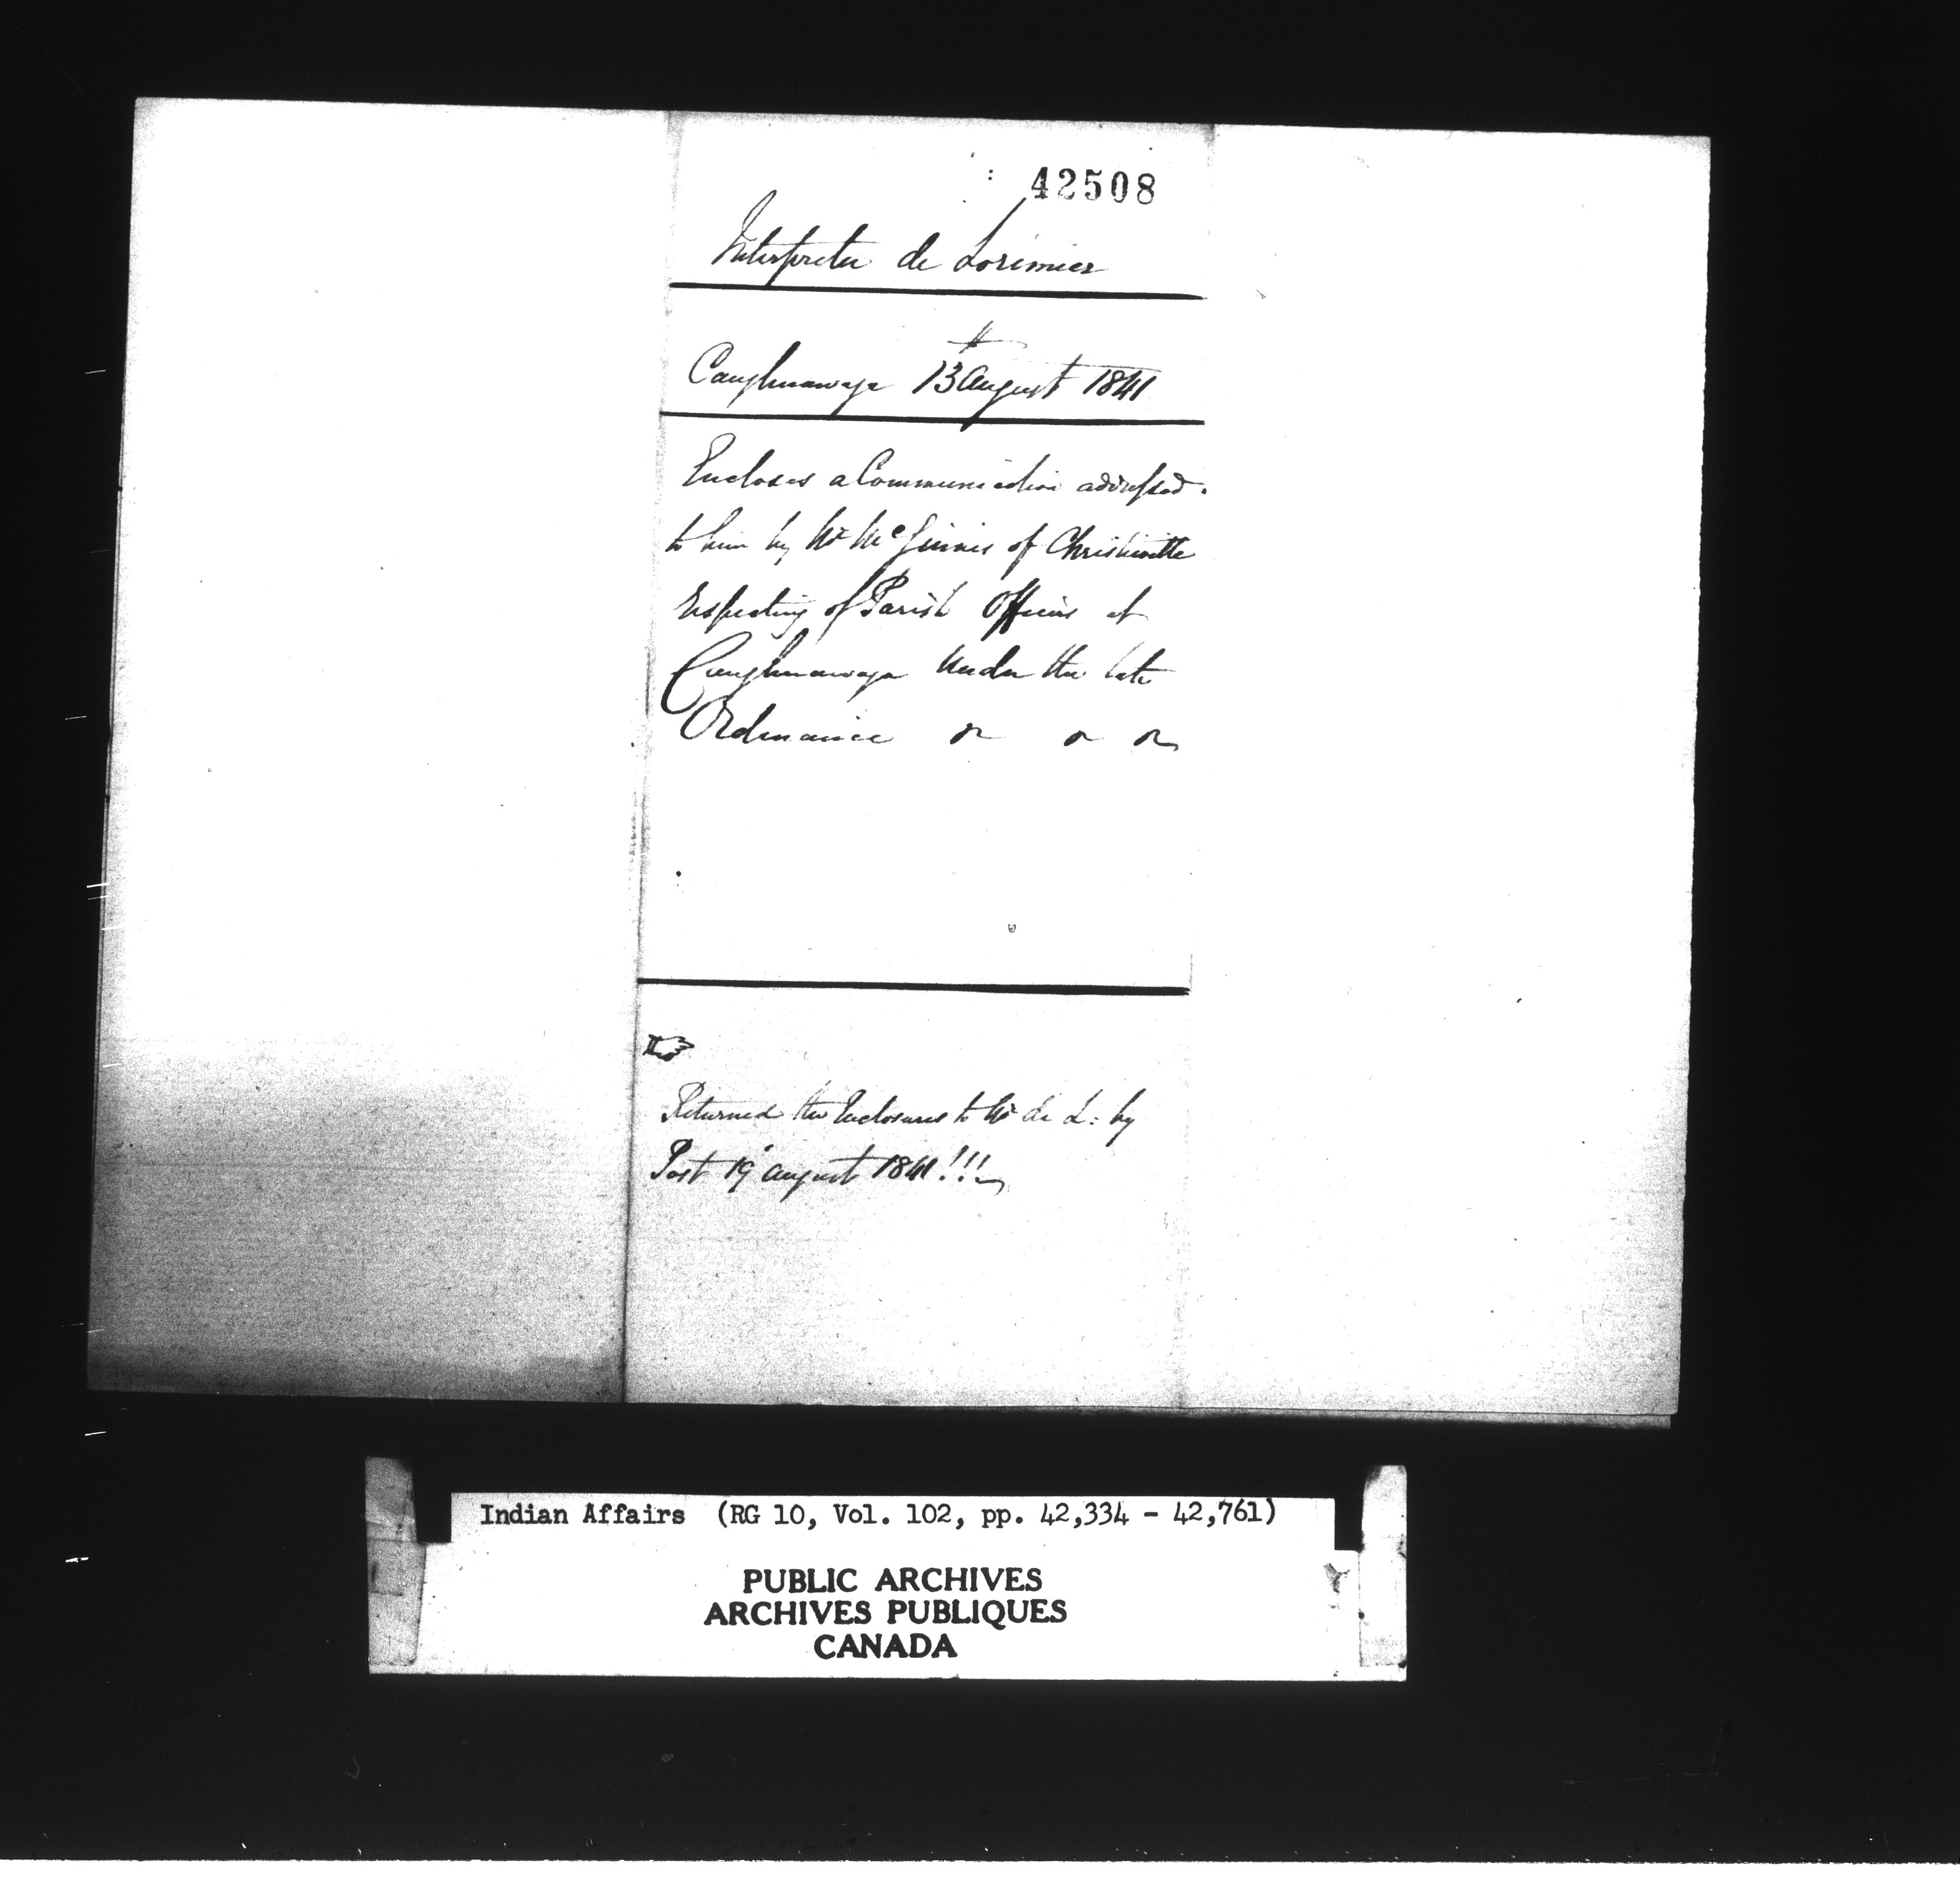 42508
Interpreter de Lorimier
Caughnawaga 13th August 1841
Encloses a Communication addressed
to him by Mr McGinnis of Christieville
respecting of Parish Officers at
Caughnawaga under the late
Ordinance
Returned the Enclosures to Mr de L: by
Post 19 August 1841!!!
Indian Affairs (RG 10, Vol. 102, pp. 42,334 - 42,761)
PUBLIC ARCHIVES
ARCHIVES PUBLIQUES
CANADA